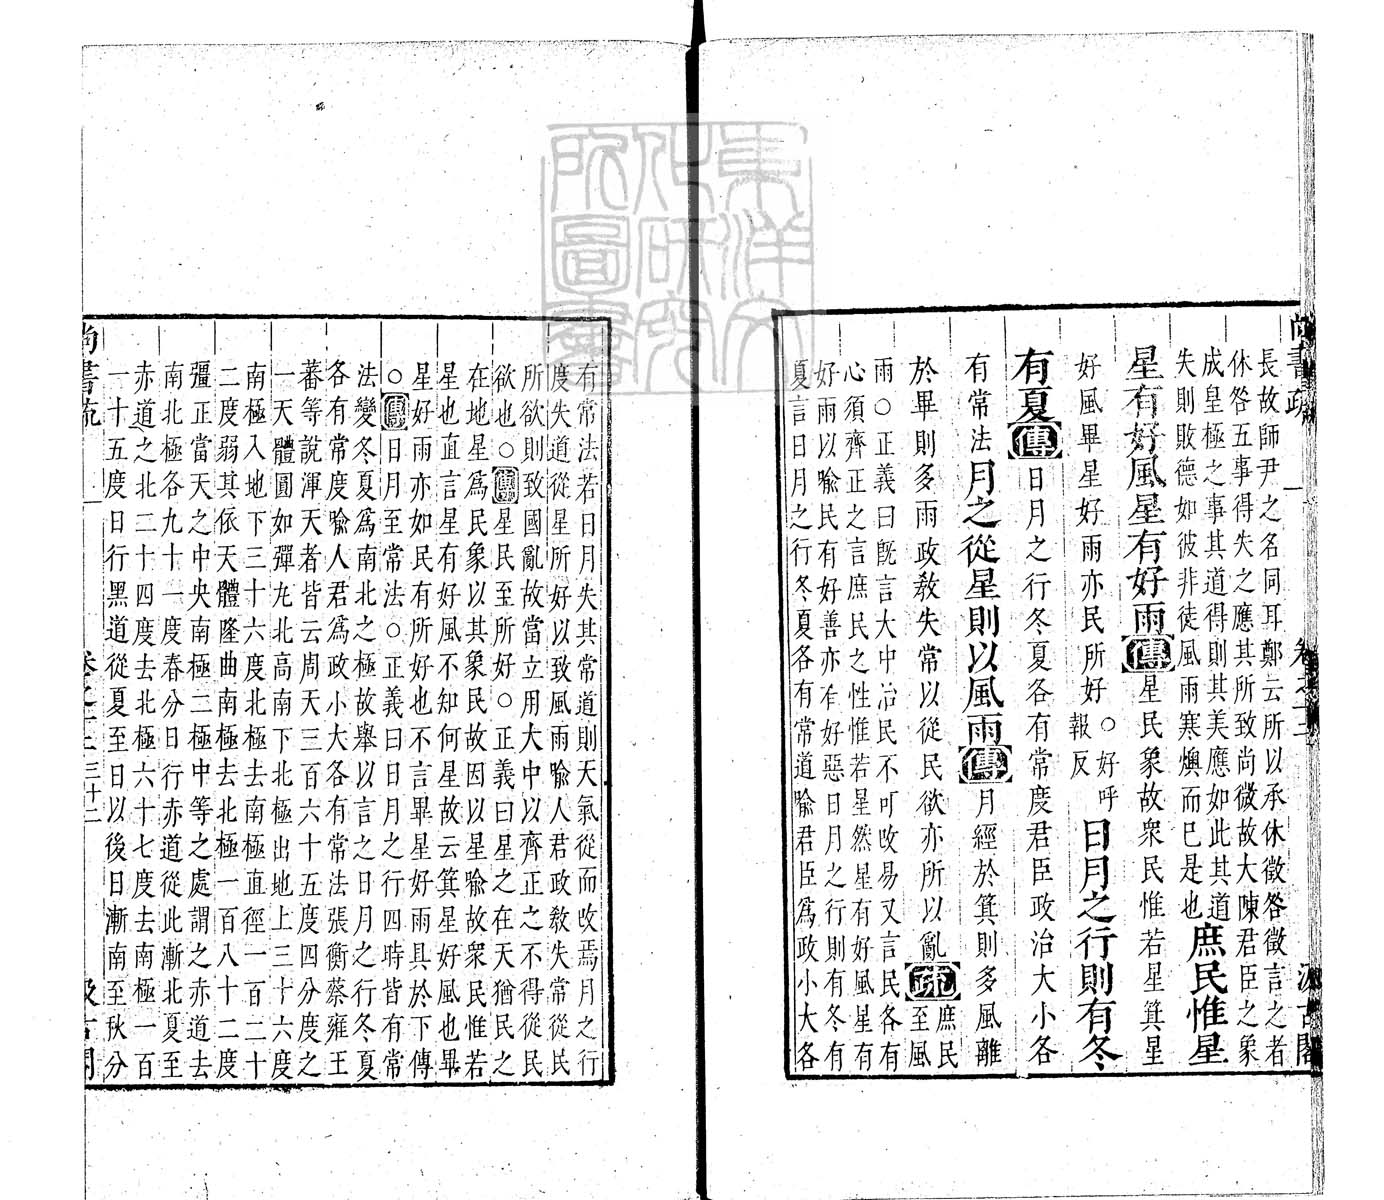 長故師尹之名同耳鄭云所以承休徵咎徵言之者
休咎五事得失之應其所致尚微故大陳君臣之象
成皇極之事其道得則其美應如此其道
失則敗德如彼非徒風雨寒燠而已是也庶民惟星
星有好風星有好雨傳星民象故衆民惟若星箕星
好風畢星好雨亦民所好○好呼報反日月之行則有冬
有夏傳日月之行冬夏各有常度君臣政治大小各
有常法月之從星則以風雨傳月經於箕則多風離
於畢則多雨政教失常以從民欲亦所以亂疏庶民至風
雨○正義曰旣言大中治民不可改易又言民各有
心須齊正之言庶民之性惟若星然星有好風星有
好雨以喻民有好善亦有好惡日月之行則有冬有
夏言日月之行冬夏各有常道喻君臣爲政小大各
有常法若日月失其常道則天氣從而改焉月之行
度失道從星所好以致風雨喻人君政教失常從民
所欲則致國亂故當立用大中以齊正之不得從民
欲也○傳星民至所好○正義曰星之在天猶民之
在地星爲民象以其象民故因以星喻故衆民惟若
星也直言星有好風不知何星故云箕星好風也畢
星好雨亦如民有所好也不言畢星好雨具於下傳
○傳日月至常法○正義曰日月之行四時皆有常
法變冬夏爲南北之極故舉以言之日月之行冬夏
各有常度喻人君爲政小大各有常法張衡蔡雍王
蕃等說渾天者皆云周天三百六十五度四分度之
一天體圓如彈丸北高南下北極出地上三十六度
南極入地下三十六度北極去南極直徑一百二十
二度弱其依天體隆曲南極去北極一百八十二度
彊正當天之中央南極二極中等之處謂之赤道去
南北極各九十一度春分日行赤道從此漸北夏至
赤道之北二十四度去北極六十七度去南極一百
一十五度日行黑道從夏至日以後日漸南至秋分
尚書疏 卷之十二 三十二 汲古閣